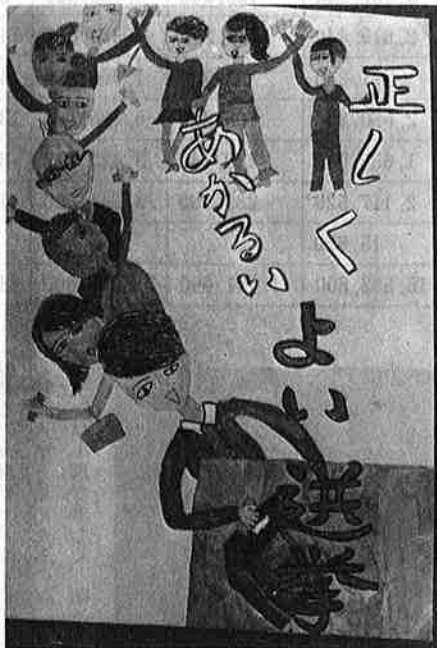 正しく
あかるい
よい選挙